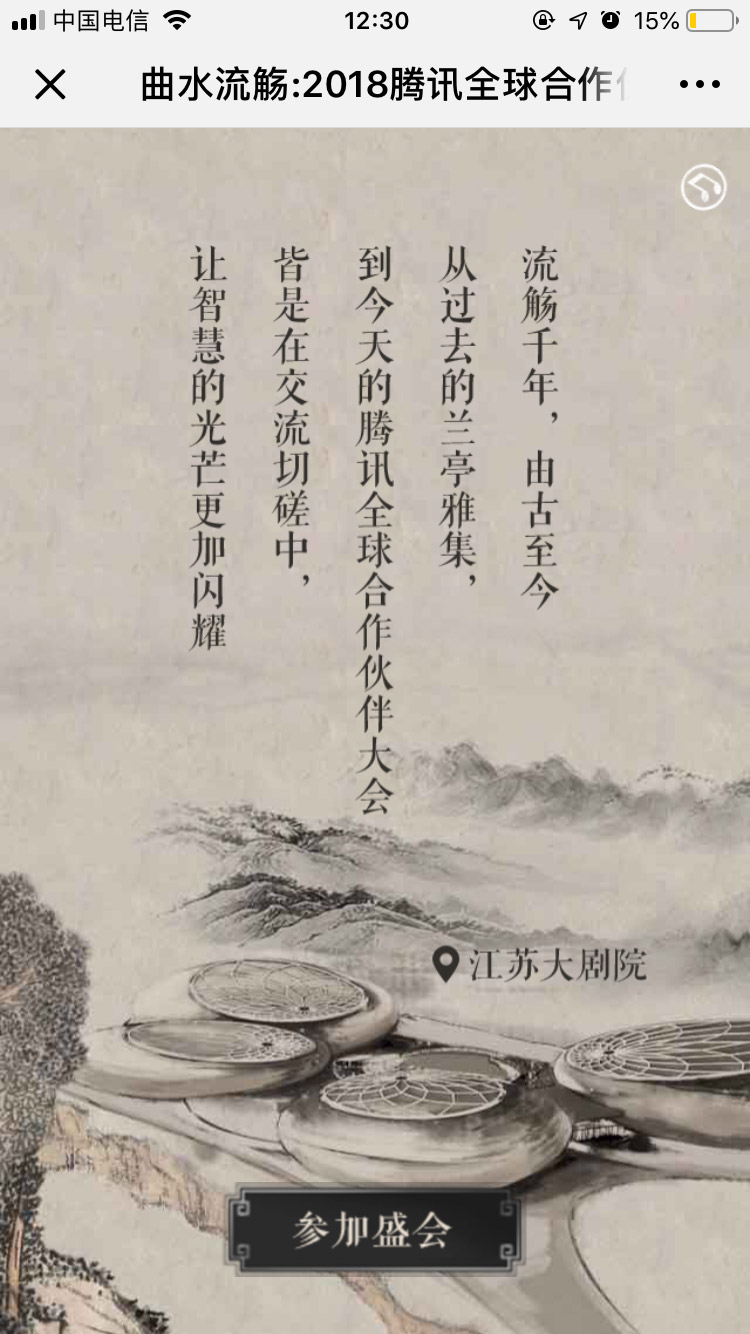 中国电信
12:30
15%
曲水流觞:2018腾讯全球合作
流觞千年，由古至今
从过去的兰亭雅集，
到今天的腾讯全球合作伙伴大会
皆是在交流切磋中，
让智慧的光芒更加闪耀
江苏大剧院
参加盛会